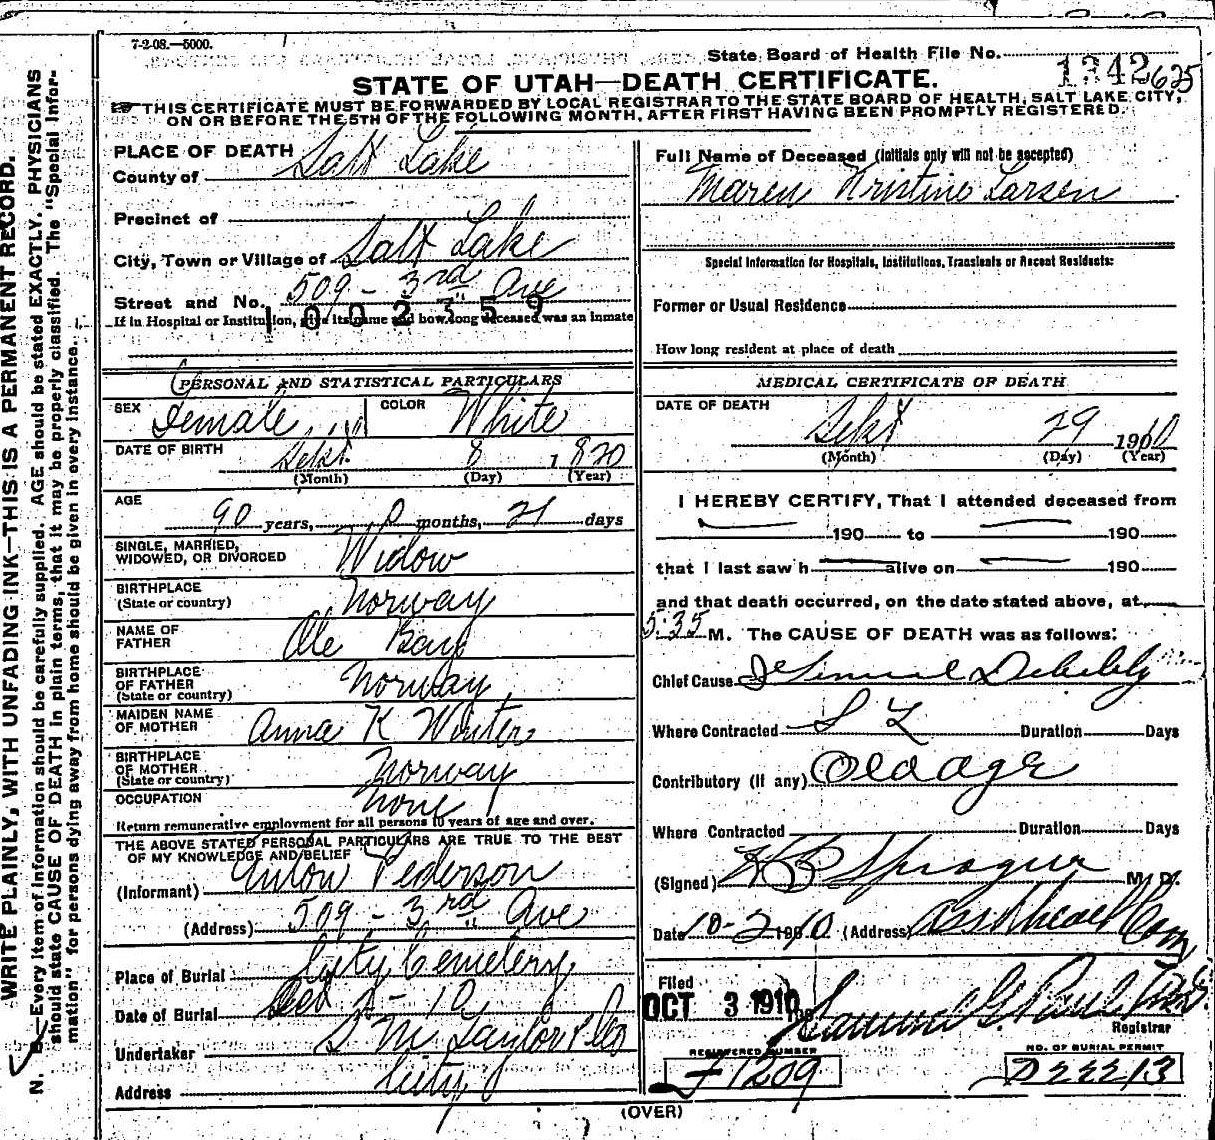 7-2-08.—5000.
State Board of Health File No. 1342635
STATE OF UTAH—DEATH CERTIFICATE.
THIS CERTIFICATE MUST BE FORWARDED BY LOCAL REGISTRAR TO THE STATE BOARD OF HEALTH, SALT LAKE CITY,
ON OR BEFORE THE 5TH OF THE FOLLOWING MONTH, AFTER FIRST HAVING BEEN PROMPTLY REGISTERED.
WRITE PLAINLY, WITH UNFADING INK—THIS IS A PERMANENT RECORD.
N. B.—Every item of information should be carefully supplied. AGE should be stated EXACTLY. PHYSICIANS
should state CAUSE OF DEATH in plain terms, that it may be properly classified. The "Special Infor-
mation" for persons dying away from home should be given in every instance.
PLACE OF DEATH
County of Salt Lake
Precinct of
City, Town or Village of Salt Lake
Street and No. 509 - 3rd Ave
1002359
If in Hospital or Institution, give its name and how long deceased was an inmate
PERSONAL AND STATISTICAL PARTICULARS
SEX Female COLOR White
DATE OF BIRTH Sept 8 1820
(Month) (Day) (Year)
AGE
90 years, 0 months, 21 days
SINGLE, MARRIED,
WIDOWED, OR DIVORCED Widow
BIRTHPLACE
(State or country) Norway
NAME OF
FATHER Ole
BIRTHPLACE
OF FATHER
(State or country) Norway
MAIDEN NAME
OF MOTHER Anna K Winter
BIRTHPLACE
OF MOTHER
(State or country) Norway
OCCUPATION None
Return remunerative employment for all persons 10 years of age and over.
THE ABOVE STATED PERSONAL PARTICULARS ARE TRUE TO THE BEST
OF MY KNOWLEDGE AND BELIEF
(Informant) Anton Pederson
(Address) 509 - 3rd Ave
Place of Burial City Cemetery
Date of Burial Oct 2 - 10
Undertaker S M Taylor & Co
Address City
Full Name of Deceased (initials only will not be accepted)
Maren Kristine Larsen
Special Information for Hospitals, Institutions, Transients or Recent Residents:
Former or Usual Residence
How long resident at place of death
MEDICAL CERTIFICATE OF DEATH
DATE OF DEATH
Sept 29 1910
(Month) (Day) (Year)
I HEREBY CERTIFY, That I attended deceased from
190 to 190
that I last saw h alive on 190
and that death occurred, on the date stated above, at
5:35 M. The CAUSE OF DEATH was as follows:
Chief Cause General Debility
Where Contracted S L Duration Days
Contributory (if any) Old age
Where Contracted Duration Days
(Signed) H B Sprague M. D.
Date 10-2-1910 (Address) Asst Health Com
Filed
OCT 3 1910 Samuel G. Paul
Registrar
REGISTERED NUMBER
F 1209
NO. OF BURIAL PERMIT
D22213
(OVER)